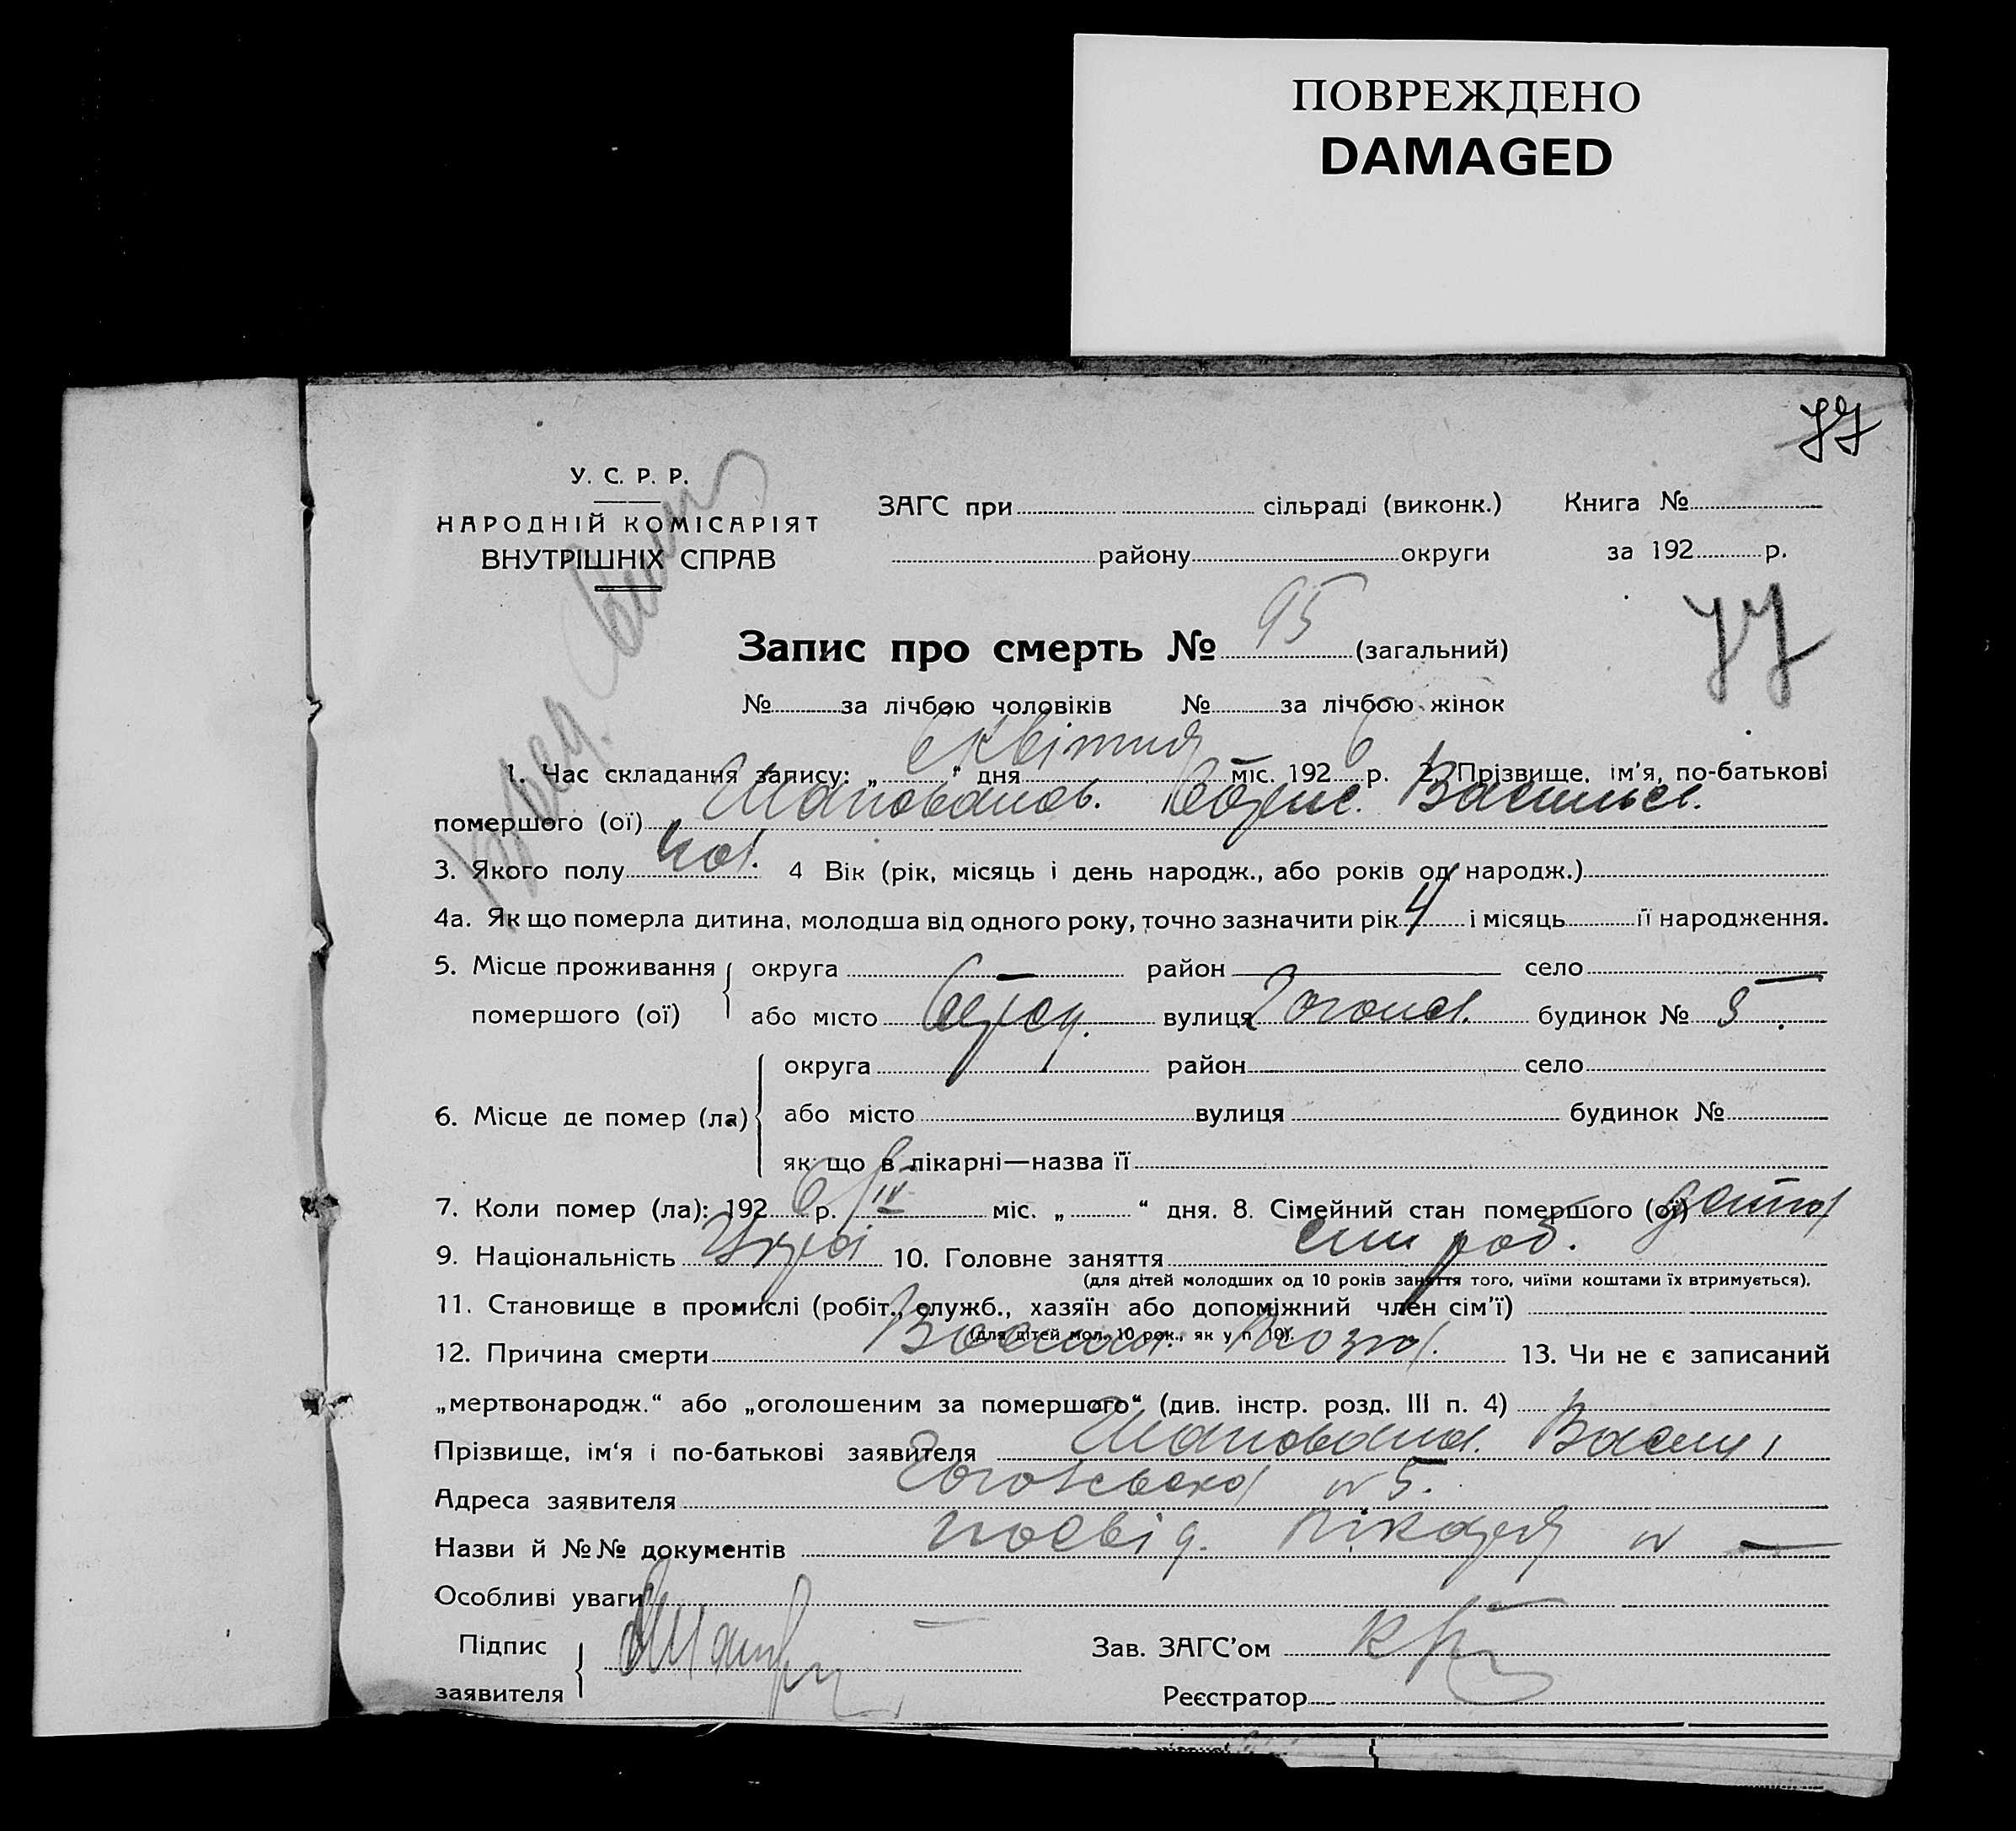 ПОВРЕЖДЕНО
DAMAGED
У. С. Р. Р.
НАРОДНІЙ КОМІСАРІЯТ
ВНУТРІШНІХ СПРАВ
ЗАГС при сільраді (виконк.) Книга №
району округи за 192 р.
Запис про смерть № 95 (загальний)
№ за лічбою чоловіків № за лічбою жінок
1. Час складання запису: „ 6 “ дня квітня міс. 192 6 р. 2. Прізвище, ім'я, по-батькові
помершого (ої) Шаповалов. Васильев.
3. Якого полу чол. 4 Вік (рік, місяць і день народж., або років од народж.)
4а. Як що померла дитина, молодша від одного року, точно зазначити рік 4 і місяць її народження.
5. Місце проживання помершого (ої) округа — район — село —
або місто вулиця будинок № 5.
6. Місце де помер (ла) округа район село
або місто вулиця будинок №
як що в лікарні—назва її
7. Коли помер (ла): 192 6 р. IV міс. „ “ дня. 8. Сімейний стан помершого (ої)
9. Національність 10. Головне заняття син роб.
(для дітей молодших од 10 років заняття того, чиїми коштами їх втримується).
11. Становище в промислі (робіт., служб., хазяїн або допоміжний член сім'ї)
(для дітей мол. 10 рок., як у п 10).
12. Причина смерти 13. Чи не є записаний
„мертвонародж.“ або „оголошеним за помершого“ (див. інстр. розд. III п. 4)
Прізвище, ім'я і по-батькові заявителя Шаповалов.
Адреса заявителя №5.
Назви й №№ документів посвід. лікаря № —
Особливі уваги
Підпис заявителя Зав. ЗАГС'ом
Реєстратор